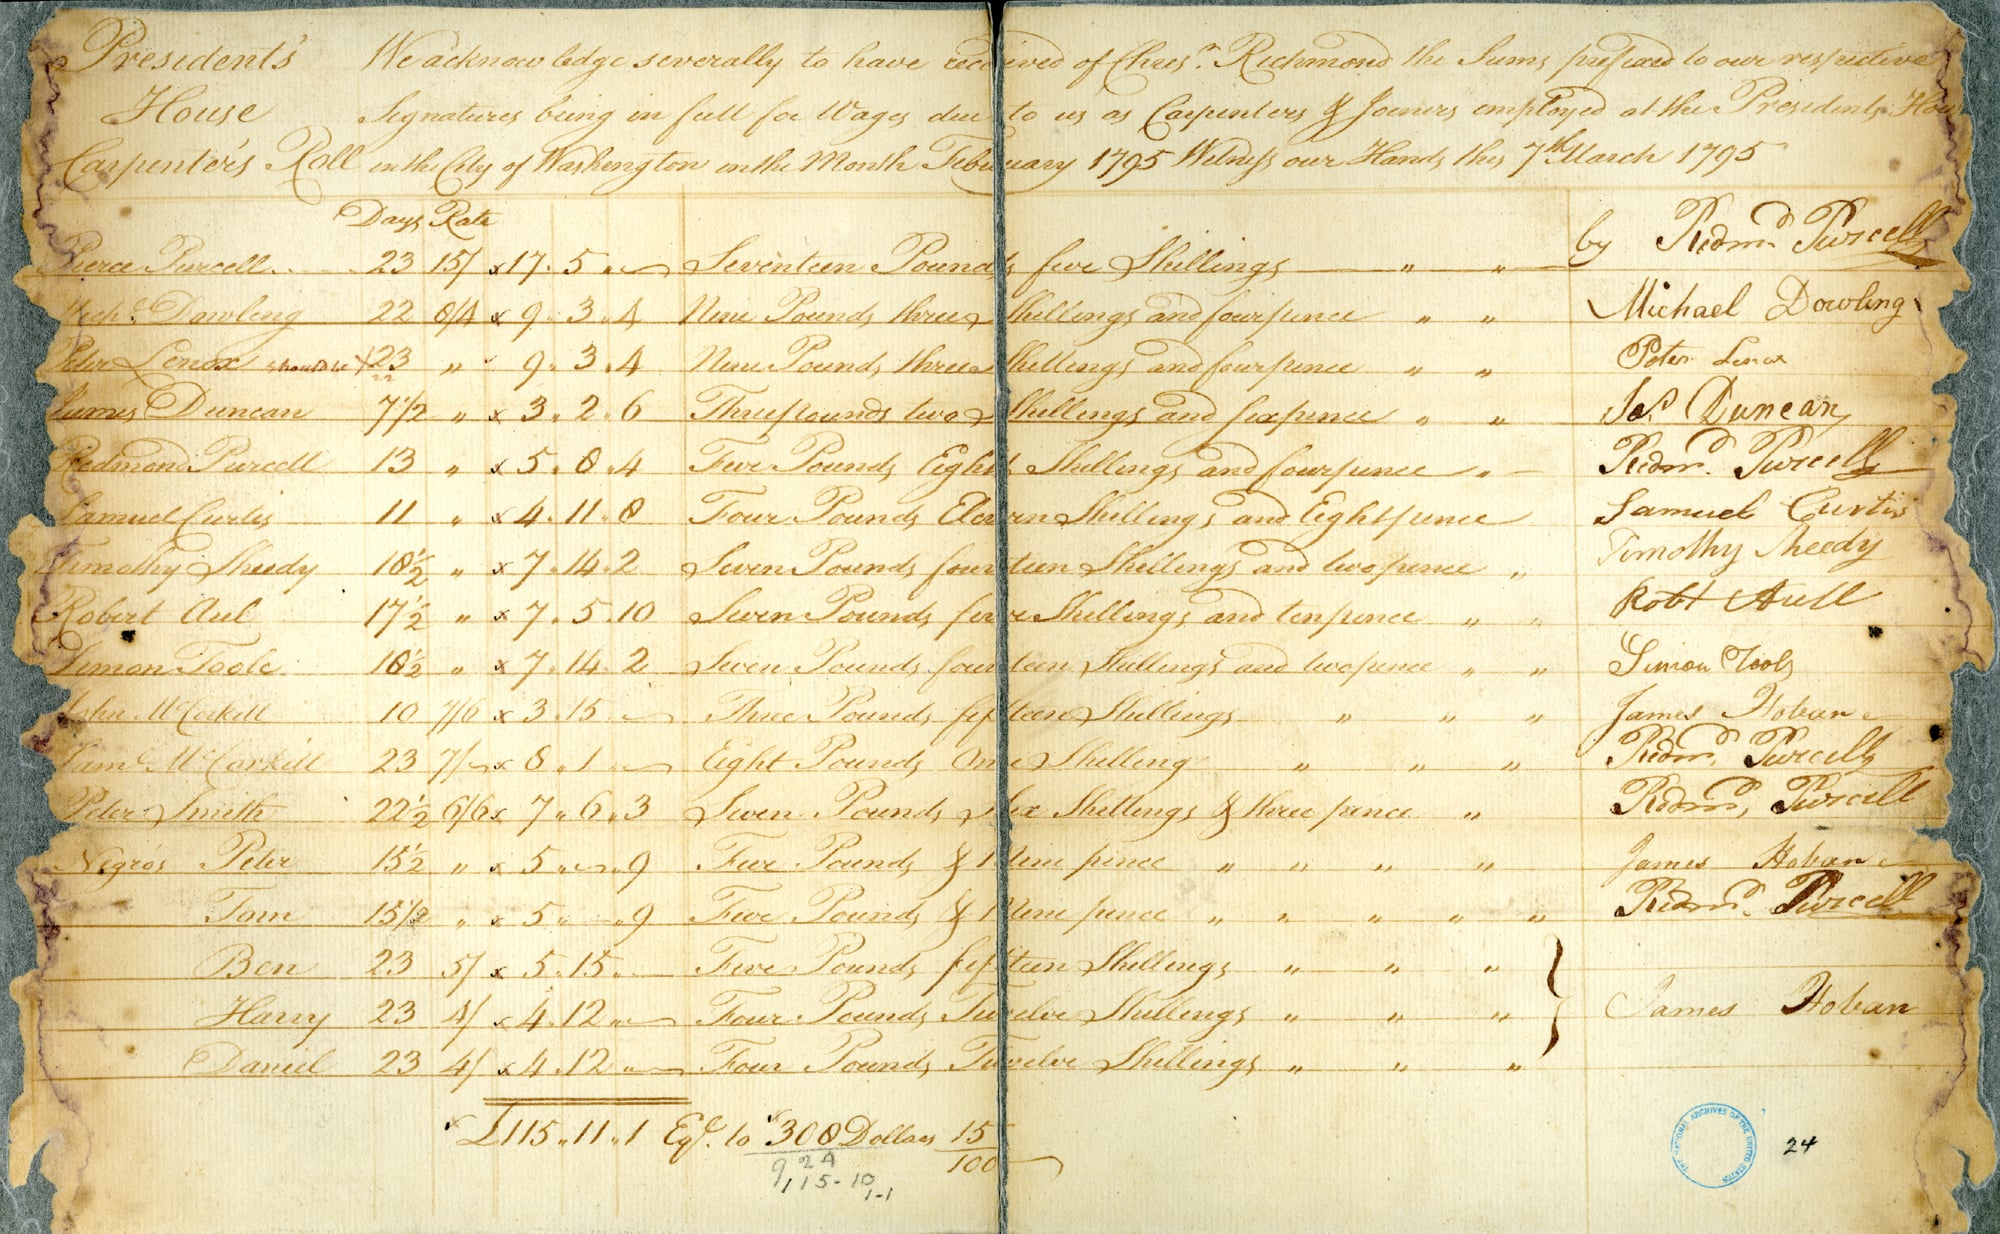 President's We acknowledge severally to have received of Chrisr. Richmond the Sums prefixed to our respective
House Signatures being in full for Wages due to us as Carpenters & Joiners employed at the Presidents House
Carpenter's Roll in the City of Washington in the Month February 1795 Witness our Hands this 7th March 1795
Days Rate
Pierce Purcell 23 15/ x 17 . 5 " Seventeen Pounds five Shillings " " by Redmd. Purcell
Michl. Dowling 22 8/4 x 9 . 3 . 4 Nine Pounds three Shillings and fourpence " " Michael Dowling
Peter Lenox should be x 23 " 9 . 3 . 4 Nine Pounds three Shillings and fourpence " " Peter Lenox
22
James Duncan 7 1/2 " x 3 . 2 . 6 Three pounds two Shillings and sixpence " " Jas. Duncan
Redmond Purcell 13 " x 5 . 8 . 4 Five Pounds Eight Shillings and fourpence " Redmd. Purcell
Samuel Curtis 11 " x 4 . 11 . 8 Four Pounds Eleven Shillings and Eightpence Samuel Curtis
Timothy Sheedy 18 1/2 " x 7 . 14 . 2 Seven Pounds fourteen Shillings and twopence " Timothy Sheedy
Robert Aul 17 1/2 " x 7 . 5 . 10 Seven Pounds five Shillings and tenpence " " Robt Aull
Simon Toole 18 1/2 " x 7 . 14 . 2 Seven Pounds fourteen Shillings and twopence " " Simon Toole
John McCorkill 10 7/6 x 3 . 15 . Three Pounds fifteen Shillings " " " James Hoban
Saml. McCorkill 23 7/ x 8 . 1 . Eight Pounds One Shilling " " " Redmd. Purcell
Peter Smith 22 1/2 6/6 x 7 . 6 . 3 Seven Pounds Six Shillings & three pence " Redmd. Purcell
Negro's Peter 15 1/2 " x 5 . " 9 Five Pounds & Nine pence " " " " James Hoban
Tom 15 1/2 " x 5 . " 9 Five Pounds & Nine pence " " " " " Redmd. Purcell
Ben 23 5/ x 5 . 15 . Five Pounds fifteen Shillings " " "
Harry 23 4/ x 4 . 12 " Four Pounds Twelve Shillings " " " James Hoban
Daniel 23 4/ x 4 . 12 " Four Pounds Twelve Shillings " " "
£115 . 11 . 1 Eql. to 308 Dollars 15/100
9 24
115-10
1-1
THE NATIONAL ARCHIVES OF THE UNITED STATES
24